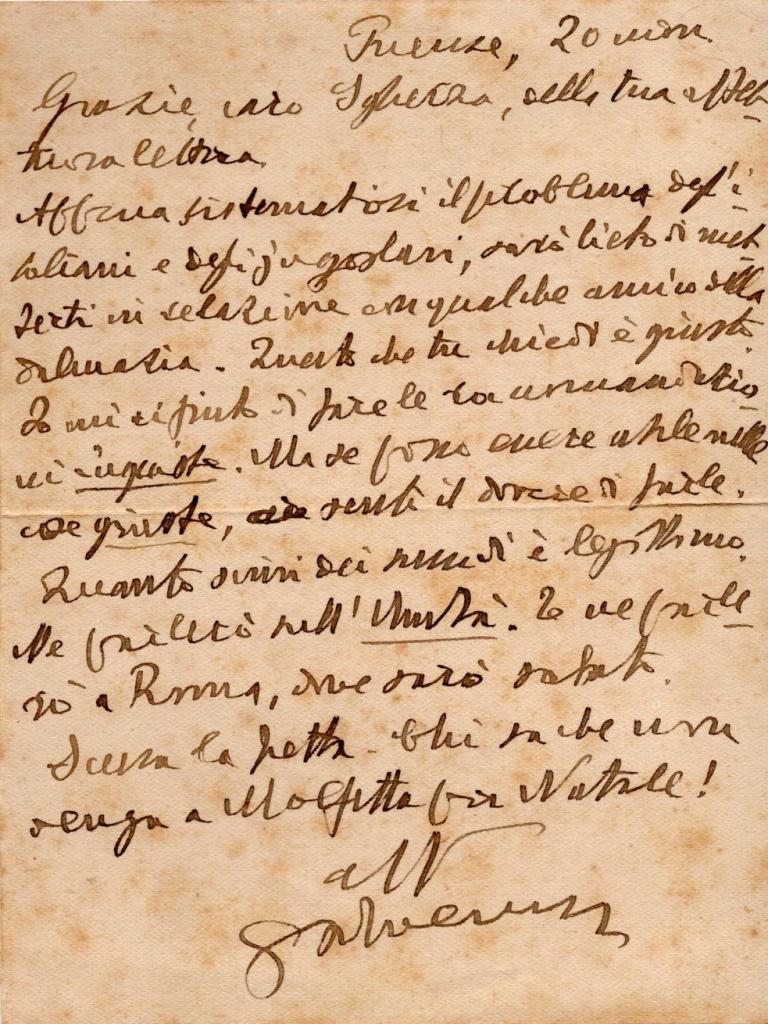 Firenze, 20 nov.
Grazie, caro Sgherza, della tua affet-
tuosa lettera.
Appena sistematosi il problema degl'i-
taliani e degli jugoslavi, sarò lieto di met-
terti in relazione con qualche amico della
Dalmazia. Quanto che tu chiedi è giusto.
Io mi rifiuto di fare le raccomandazio
ni ingiuste. Ma se posso essere utile nelle
cose giuste, sento il dovere di farle.
Quanto scrivi dei sussidi è legittimo.
Ne parlerò sull'Unità. Io ne parle-
rò a Roma, dove sarò sabato.
Scusa la fretta. Chi sa che non
venga a Molfetta per Natale!
aff
GSalvemini